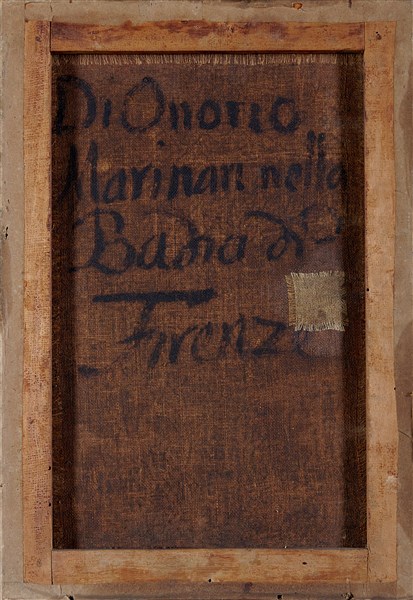 Di Onorio
Marinari nella
Badia di
Firenze